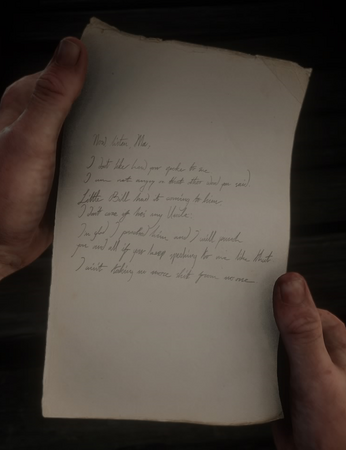 I dont like how you spoke to me.
I am not angry or that other word you said
Little Bill had it coming to him.
I dont care if he's my Uncle.
I'm glad I punched him and I will punch
you and all if you keep speaking to me like that
I aint taking no more shit from no one